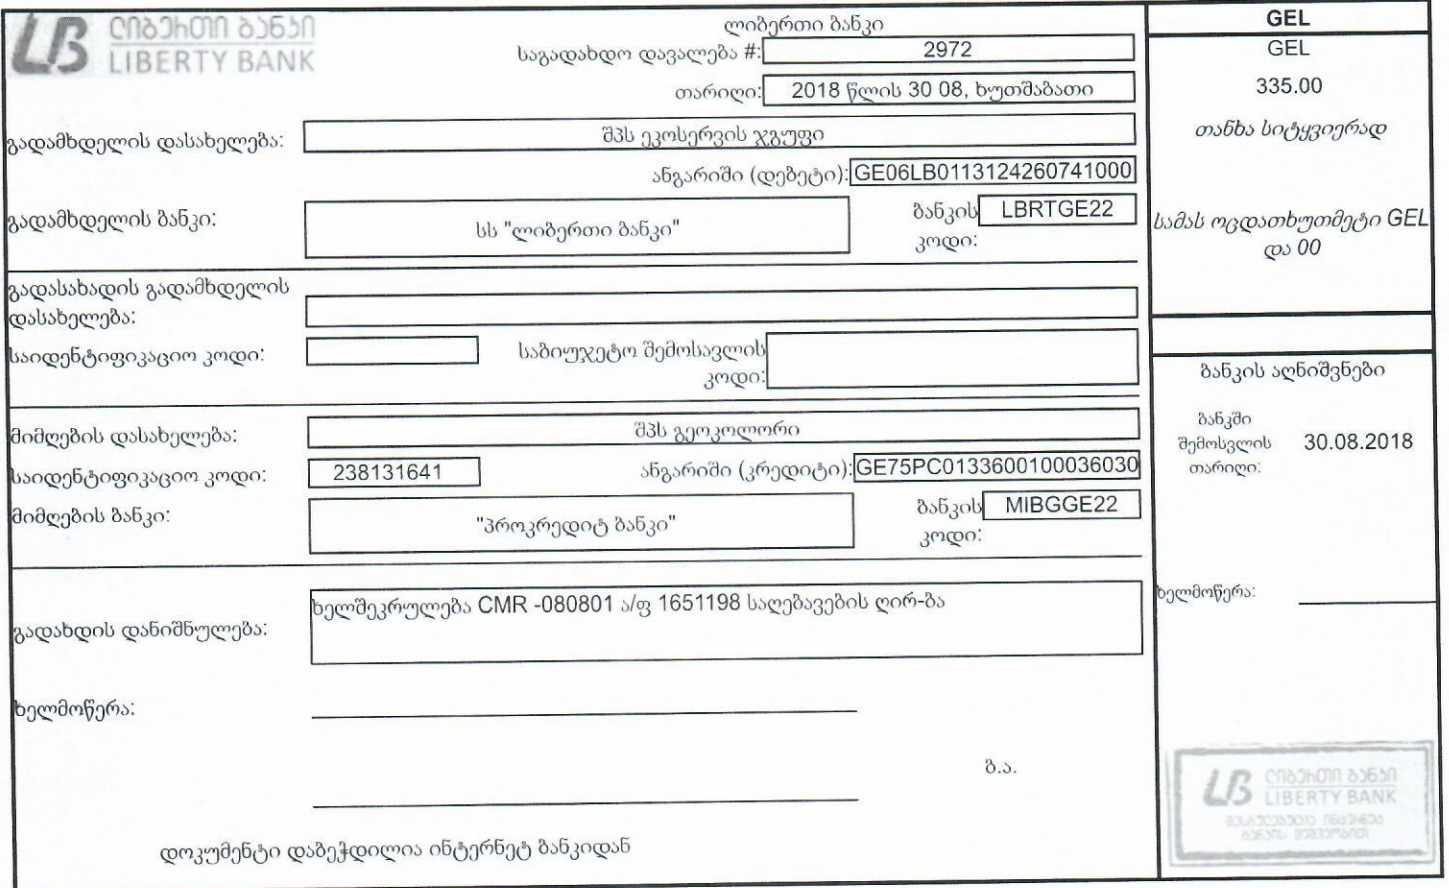 ლიბერთი ბანკი
LIBERTY BANK
ლიბერთი ბანკი
საგადახდო დავალება #: 2972
თარიღი: 2018 წლის 30 08, ხუთშაბათი
გადამხდელის დასახელება: შპს ეკოსერვის ჯგუფი
ანგარიში (დებეტი): GE06LB0113124260741000
გადამხდელის ბანკი: სს "ლიბერთი ბანკი"
ბანკის კოდი: LBRTGE22
გადასახადის გადამხდელის
დასახელება:
საიდენტიფიკაციო კოდი:
საბიუჯეტო შემოსავლის
კოდი:
მიმღების დასახელება: შპს გეოკოლორი
საიდენტიფიკაციო კოდი: 238131641
ანგარიში (კრედიტი): GE75PC0133600100036030
მიმღების ბანკი: "პროკრედიტ ბანკი"
ბანკის კოდი: MIBGGE22
გადახდის დანიშნულება: ხელშეკრულება CMR -080801 ა/ფ 1651198 საღებავების ღირ-ბა
ხელმოწერა:
ბ.ა.
დოკუმენტი დაბეჭდილია ინტერნეტ ბანკიდან
GEL
GEL
335.00
თანხა სიტყვიერად
სამას ოცდათხუთმეტი GEL
და 00
ბანკის აღნიშვნები
ბანკში
შემოსვლის
თარიღი:
30.08.2018
ხელმოწერა:
ლიბერთი ბანკი
LIBERTY BANK